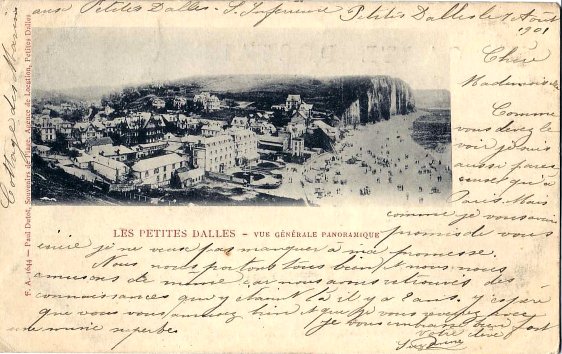 aux Petites Dalles - S. Inférieure Petites Dalles le 1 Août
1901
Chère
Mademoiselle
Comme
vous devez le
voir je suis
aussi paresseuse qu'à
Paris. Mais
comme je vous avais
promis de vous
écrire je ne veux pas manquer à ma promesse.
Nous nous portons tous bien et nous nous
amusons de même car nous avons retrouvés des
connaissances que y étaient là il y a 2 ans. J'espère
que vous vous amusez bien et que vous
une mine superbe
Je vous embrasse bien fort
votre élève
Suzanne
LES PETITES DALLES - VUE GÉNÉRALE PANORAMIQUE
F. A. 1644 - Paul Dubot, Souvenirs de Plage, Agence de Location, Petites Dalles